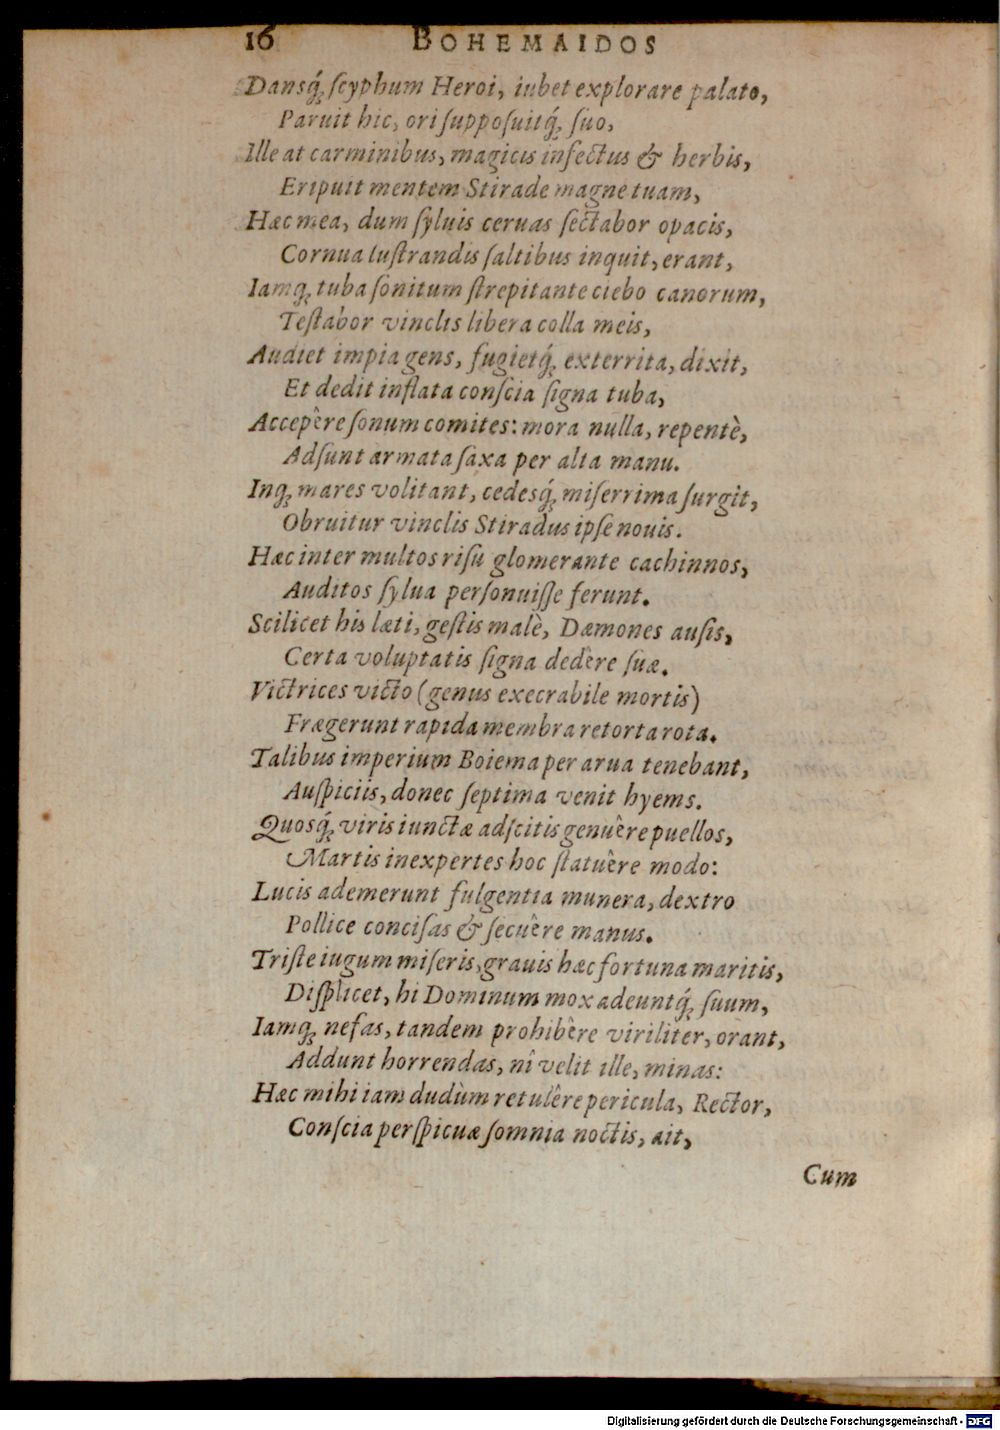 16 BOHEMAIDOS
Dansq́; ſcyphum Heroi, iubet explorare palato,
Paruit hic, ori ſuppoſuitq́; ſuo,
Ille at carminibus, magicis infectus & herbis,
Eripuit mentem Stirade magne tuam,
Hæc mea, dum ſyluis ceruas ſectabor opacis,
Cornua luſtrandis ſaltibus inquit, erant,
Iamq; tuba ſonitum ſtrepitante ciebo canorum,
Teſtabor vinclis libera colla meis,
Audiet impia gens, fugietq́; exterrita, dixit,
Et dedit inflata conſcia ſigna tuba,
Accepêre ſonum comites: mora nulla, repentè,
Adſunt armata ſaxa per alta manu.
Inq; mares volitant, cedesq́; miſerrima ſurgit,
Obruitur vinclis Stiradus ipſe nouis.
Hæc inter multos riſu glomerante cachinnos,
Auditos ſylua perſonuiſſe ferunt.
Scilicet his læti, geſtis malè, Dæmones auſis,
Certa voluptatis ſigna dedêre ſuæ.
Victrices victo (genus execrabile mortis)
Frægerunt rapida membra retorta rota.
Talibus imperium Boiema per arua tenebant,
Auſpiciis, donec ſeptima venit hyems.
Quosq́; viris iunctæ adſcitis genuêre puellos,
Martis inexpertes hoc ſtatuêre modo:
Lucis ademerunt fulgentia munera, dextro
Pollice conciſas & ſecuêre manus.
Triſte iugum miſeris, grauis hæc fortuna maritis,
Diſplicet, hi Dominum mox adeuntq́; ſuum,
Iamq; nefas, tandem prohibêre viriliter, orant,
Addunt horrendas, nî velit ille, minas:
Hæc mihi iam dudùm retulêre pericula, Rector,
Conſcia perſpicuæ ſomnia noctis, ait,
Cum
Digitalisierung gefördert durch die Deutsche Forschungsgemeinschaft - DFG